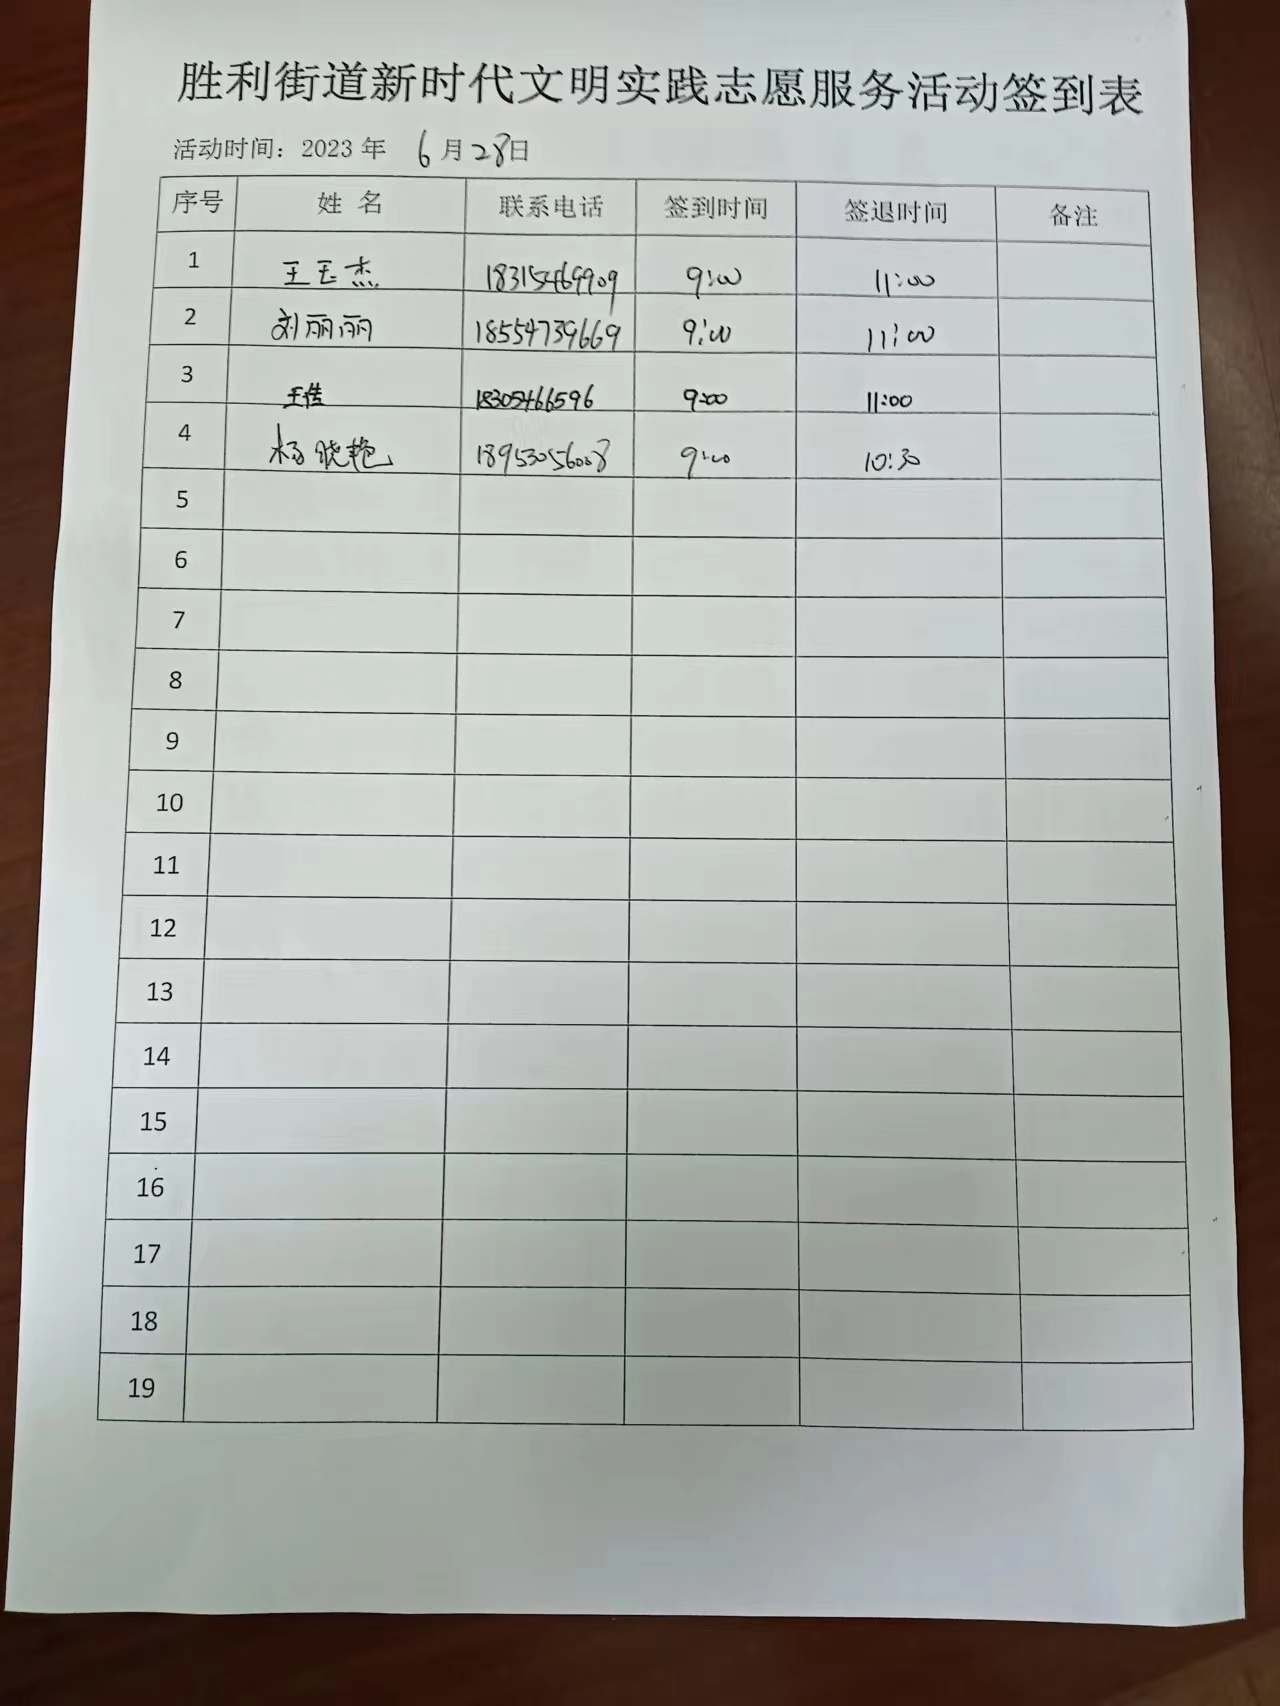 胜利街道新时代文明实践志愿服务活动签到表
活动时间：2023 年 6 月 28 日
序号 姓 名 联系电话 签到时间 签退时间 备注
1 王玉杰 18315469909 9:00 11:00
2 刘丽丽 18554739669 9:00 11:00
3 王佳 18305466596 9:00 11:00
4 杨晓艳 18953056008 9:00 10:30
5
6
7
8
9
10
11
12
13
14
15
16
17
18
19